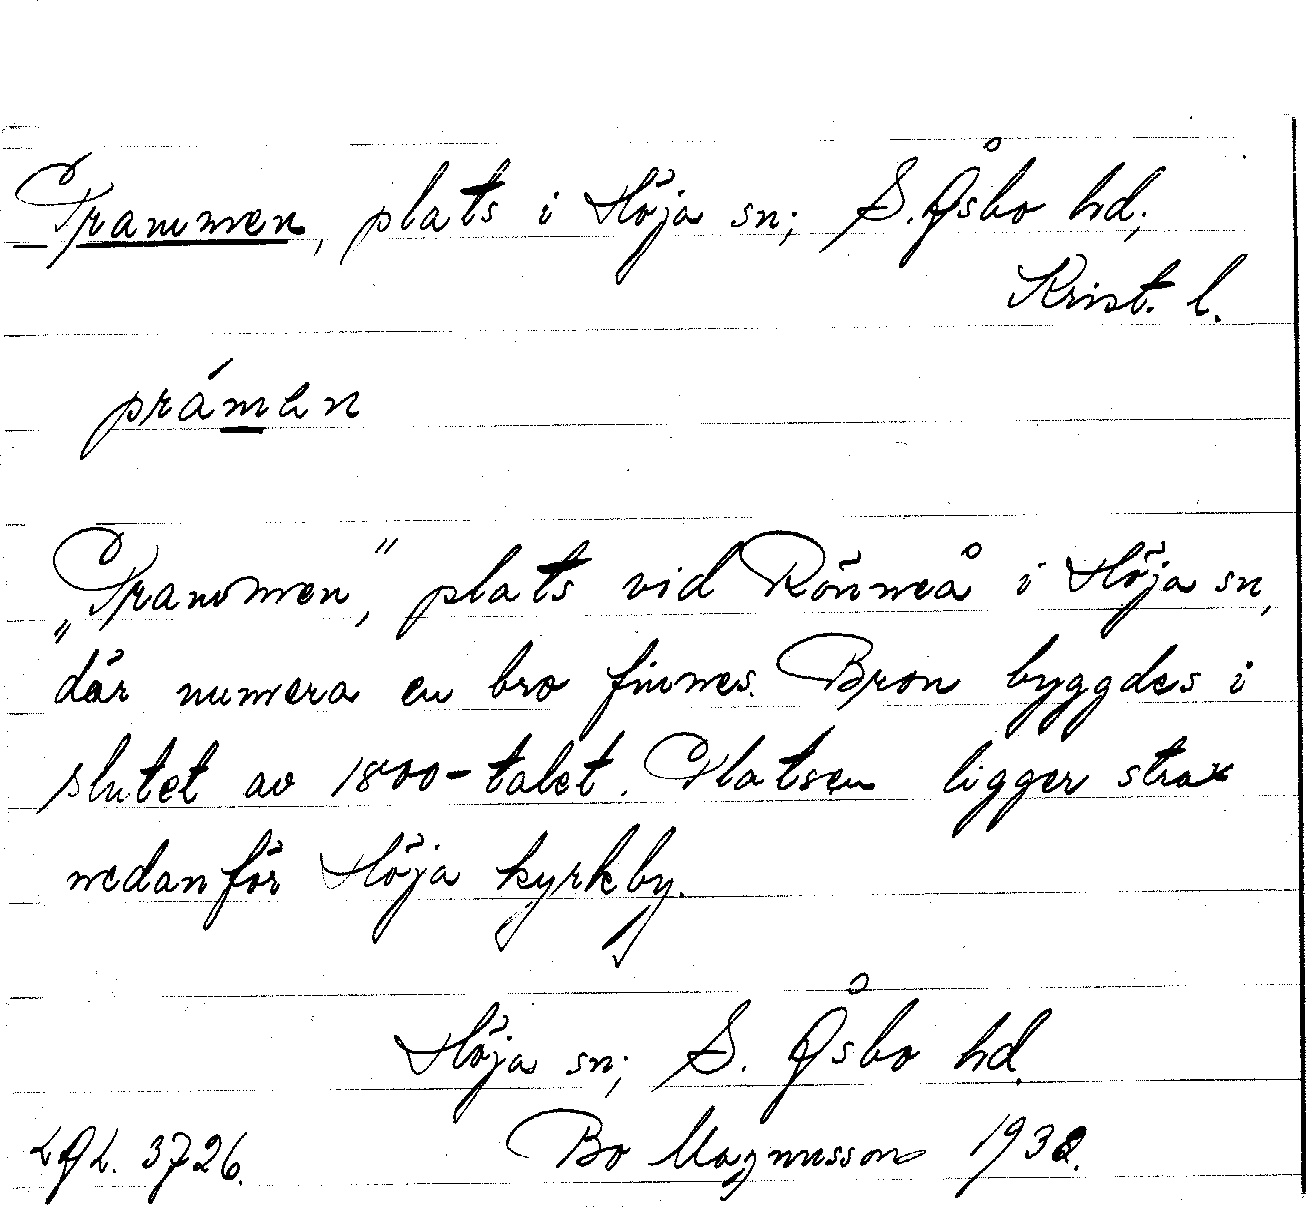 Prammen, plats i Höja sn; S. Åsbo hd;
Krist. l.
práman
„Prammen”, plats vid Rönneå i Höja sn,
där numera en bro finnes. Bron byggdes i
slutet av 1800-talet. Platsen ligger strax
nedanför Höja kyrkby.
Höja sn; S. Åsbo hd.
Bo Magnusson 1932.
LAL. 3726.